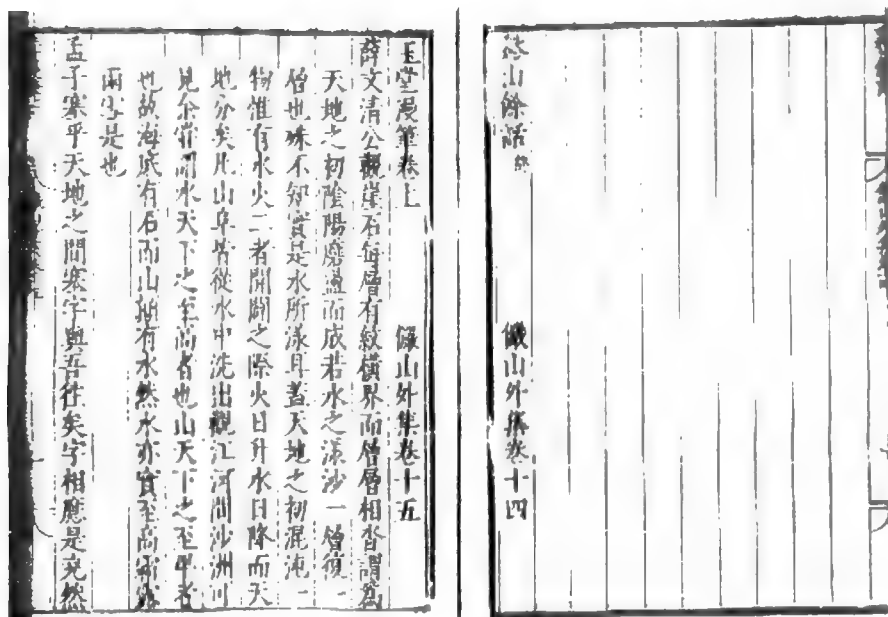 溪山餘話終 儼山外集卷十四
玉堂漫筆卷上 儼山外集卷十五
薛文清公觀崖石每層有紋橫界而層層相沓謂爲
天地之初陰陽磨盪而成若水之漾沙一層復一
層也殊不知實是水所漾耳蓋天地之初混沌一
物惟有水火二者開闢之際火日升水日降而天
地分矣凡山阜皆從水中洗出觀江河間沙洲可
見余嘗謂水天下之至高者也山天下之至卑者
也故海底有石而山有水然水亦實至高霜露
雨雪是也
孟子塞乎天地之間塞字與吾往矣字相應是充然